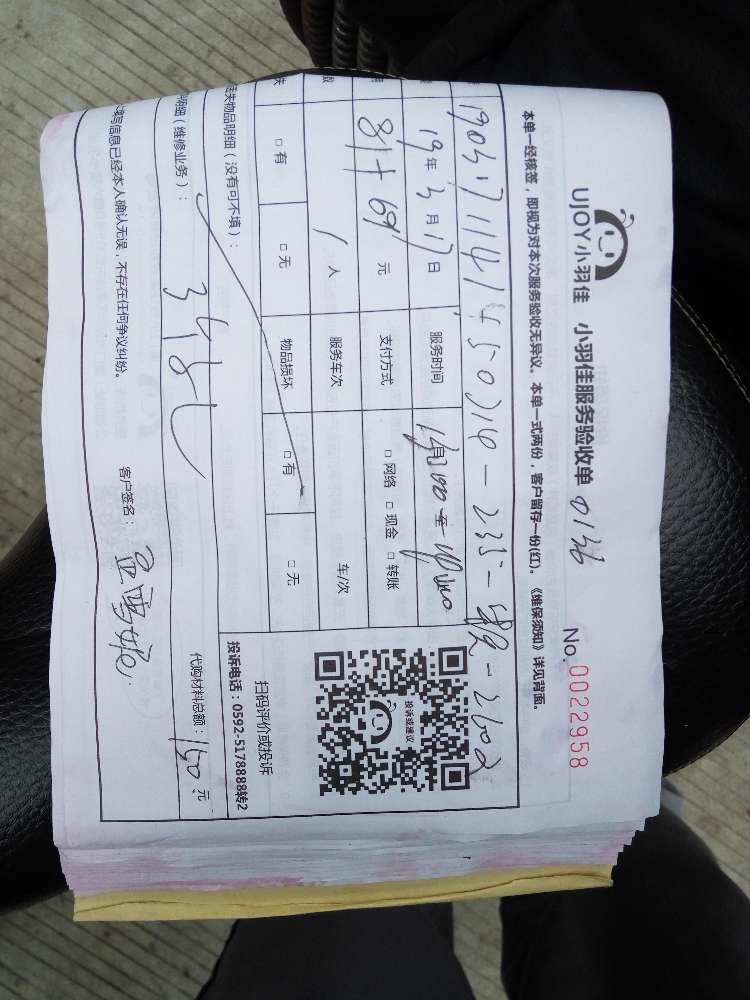 UJOY小羽佳 小羽佳服务验收单 0136
No. 0022958
本单一经核签，即视为对本次服务验收无异议。本单一式两份，客户留存一份(红)。《维保须知》详见背面。
19年3月17日 服务时间
81+69 元 支付方式 □ 网络 □ 现金 □ 转账
1人 服务车次 车/次
□ 有 □ 无 物品损坏 □ 有 □ 无
投诉或建议
扫码评价或投诉
投诉电话：0592-5178888转2
失物品明细（没有可不填）：
明细（维修业务）：
代购材料总额：150元
填写信息已经本人确认无误，不存在任何争议纠纷。
客户签名：